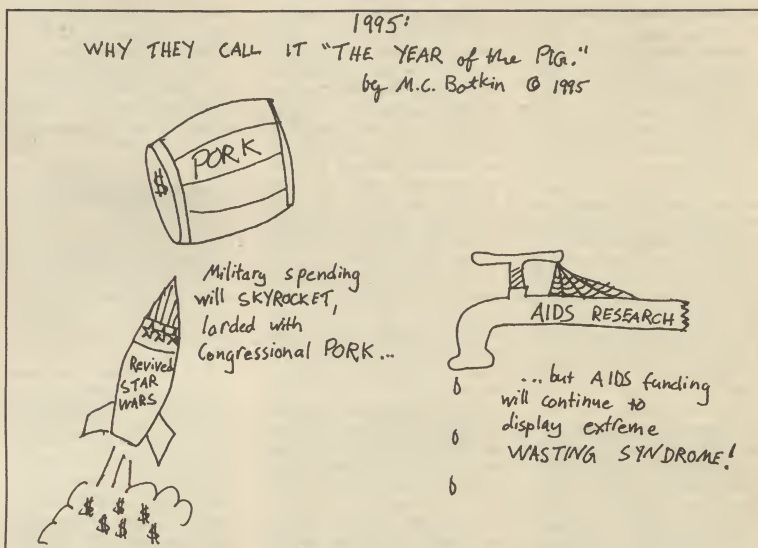 1995:
WHY THEY CALL IT "THE YEAR of the PIG."
by M.C. Botkin © 1995
PORK
$
Military spending
will SKYROCKET,
larded with
Congressional PORK...
Revived
STAR
WARS
$ $ $
$ $ $
$
AIDS RESEARCH
...but AIDS funding
will continue to
display extreme
WASTING SYNDROME!